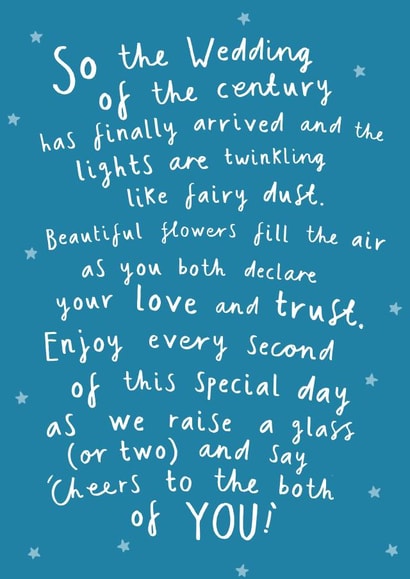 So the Wedding
of the century
has finally arrived and the
lights are twinkling
like fairy dust.
Beautiful flowers fill the air
as you both declare
your love and trust.
Enjoy every second
of this special day
as we raise a glass
(or two) and say
'Cheers to the both
of YOU!'